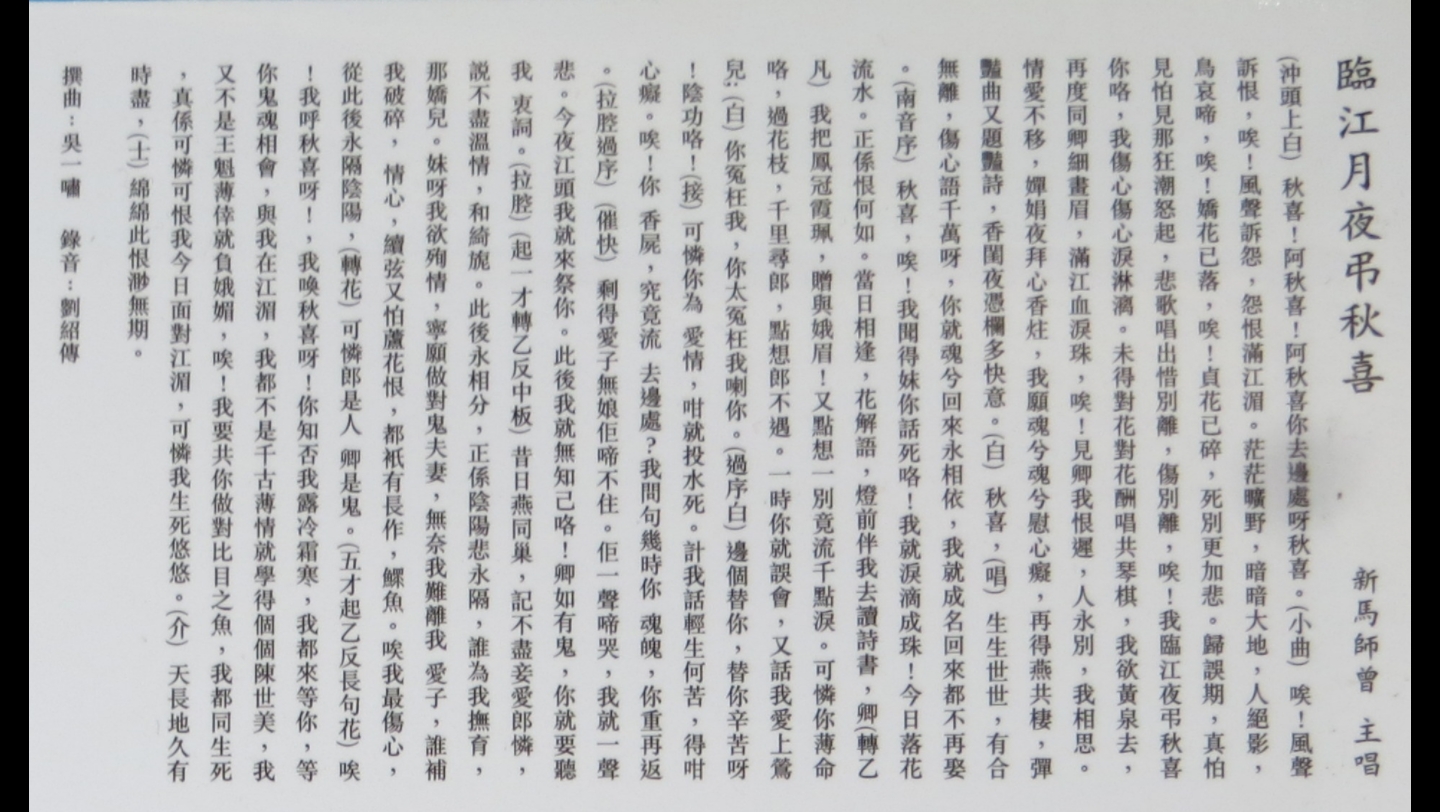 臨江月夜弔秋喜
新馬師曾 主唱
(沖頭上白) 秋喜！阿秋喜！阿秋喜你去邊處呀秋喜。(小曲) 唉！風聲
訴恨，唉！風聲訴怨，怨恨滿江湄。茫茫曠野，暗暗大地，人絕影，
鳥哀啼，唉！嬌花已落，唉！貞花已碎，死別更加悲。歸誤期，真怕
見怕見那狂潮怒起，悲歌唱出惜別離，傷別離，唉！我臨江夜弔秋喜
你咯，我傷心傷心淚淋漓。未得對花對花酬唱共琴棋，我欲黃泉去，
再度同卿細畫眉，滿江血淚珠，唉！見卿我恨遲，人永別，我相思。
情愛不移，嬋娟夜拜心香炷，我願魂兮魂兮慰心癡，再得燕共棲，彈
豔曲又題豔詩，香閨夜憑欄多快意。(白) 秋喜，(唱) 生生世世，有合
無離，傷心語千萬呀，你就魂兮回來永相依，我就成名回來都不再娶
。(南音序) 秋喜，唉！我聞得妹你話死咯！我就淚滴成珠！今日落花
流水。正係恨何如。當日相逢，花解語，燈前伴我去讀詩書，卿(轉乙
凡) 我把鳳冠霞珮，贈與娥眉！又點想一別竟流千點淚。可憐你薄命
咯，過花枝，千里尋郎，點想郎不遇。一時你就誤會，又話我愛上鶯
兒；(白) 你冤枉我，你太冤枉我喇你。(過序白) 邊個替你，替你辛苦呀
！陰功咯！(接) 可憐你為 愛情，咁就投水死。計我話輕生何苦，得咁
心癡。唉！你 香屍，究竟流 去邊處？我問句幾時你 魂魄，你重再返
。(拉腔過序) (催快) 剩得愛子無娘佢啼不住。佢一聲啼哭，我就一聲
悲。今夜江頭我就來祭你。此後我就無知己咯！卿如有鬼，你就要聽
我 衷詞。(拉腔) (起一才轉乙反中板) 昔日燕同巢，記不盡妾愛郎憐，
說不盡溫情，和綺旎。此後永相分，正係陰陽悲永隔，誰為我撫育，
那嬌兒。妹呀我欲殉情，寧願做對鬼夫妻，無奈我難離我 愛子，誰補
我破碎， 情心，續弦又怕蘆花恨，都衹有長作，鰥魚。唉我最傷心，
從此後永隔陰陽，(轉花) 可憐郎是人 卿是鬼。(五才起乙反長句花) 唉
！我呼秋喜呀！，我喚秋喜呀！你知否我露冷霜寒，我都來等你，等
你鬼魂相會，與我在江湄，我都不是千古薄情就學得個個陳世美，我
又不是王魁薄倖就負娥媚，唉！我要共你做對比目之魚，我都同生死
，真係可憐可恨我今日面對江湄，可憐我生死悠悠。(介) 天長地久有
時盡，(士) 綿綿此恨渺無期。
撰曲：吳一嘯 錄音：劉紹傳